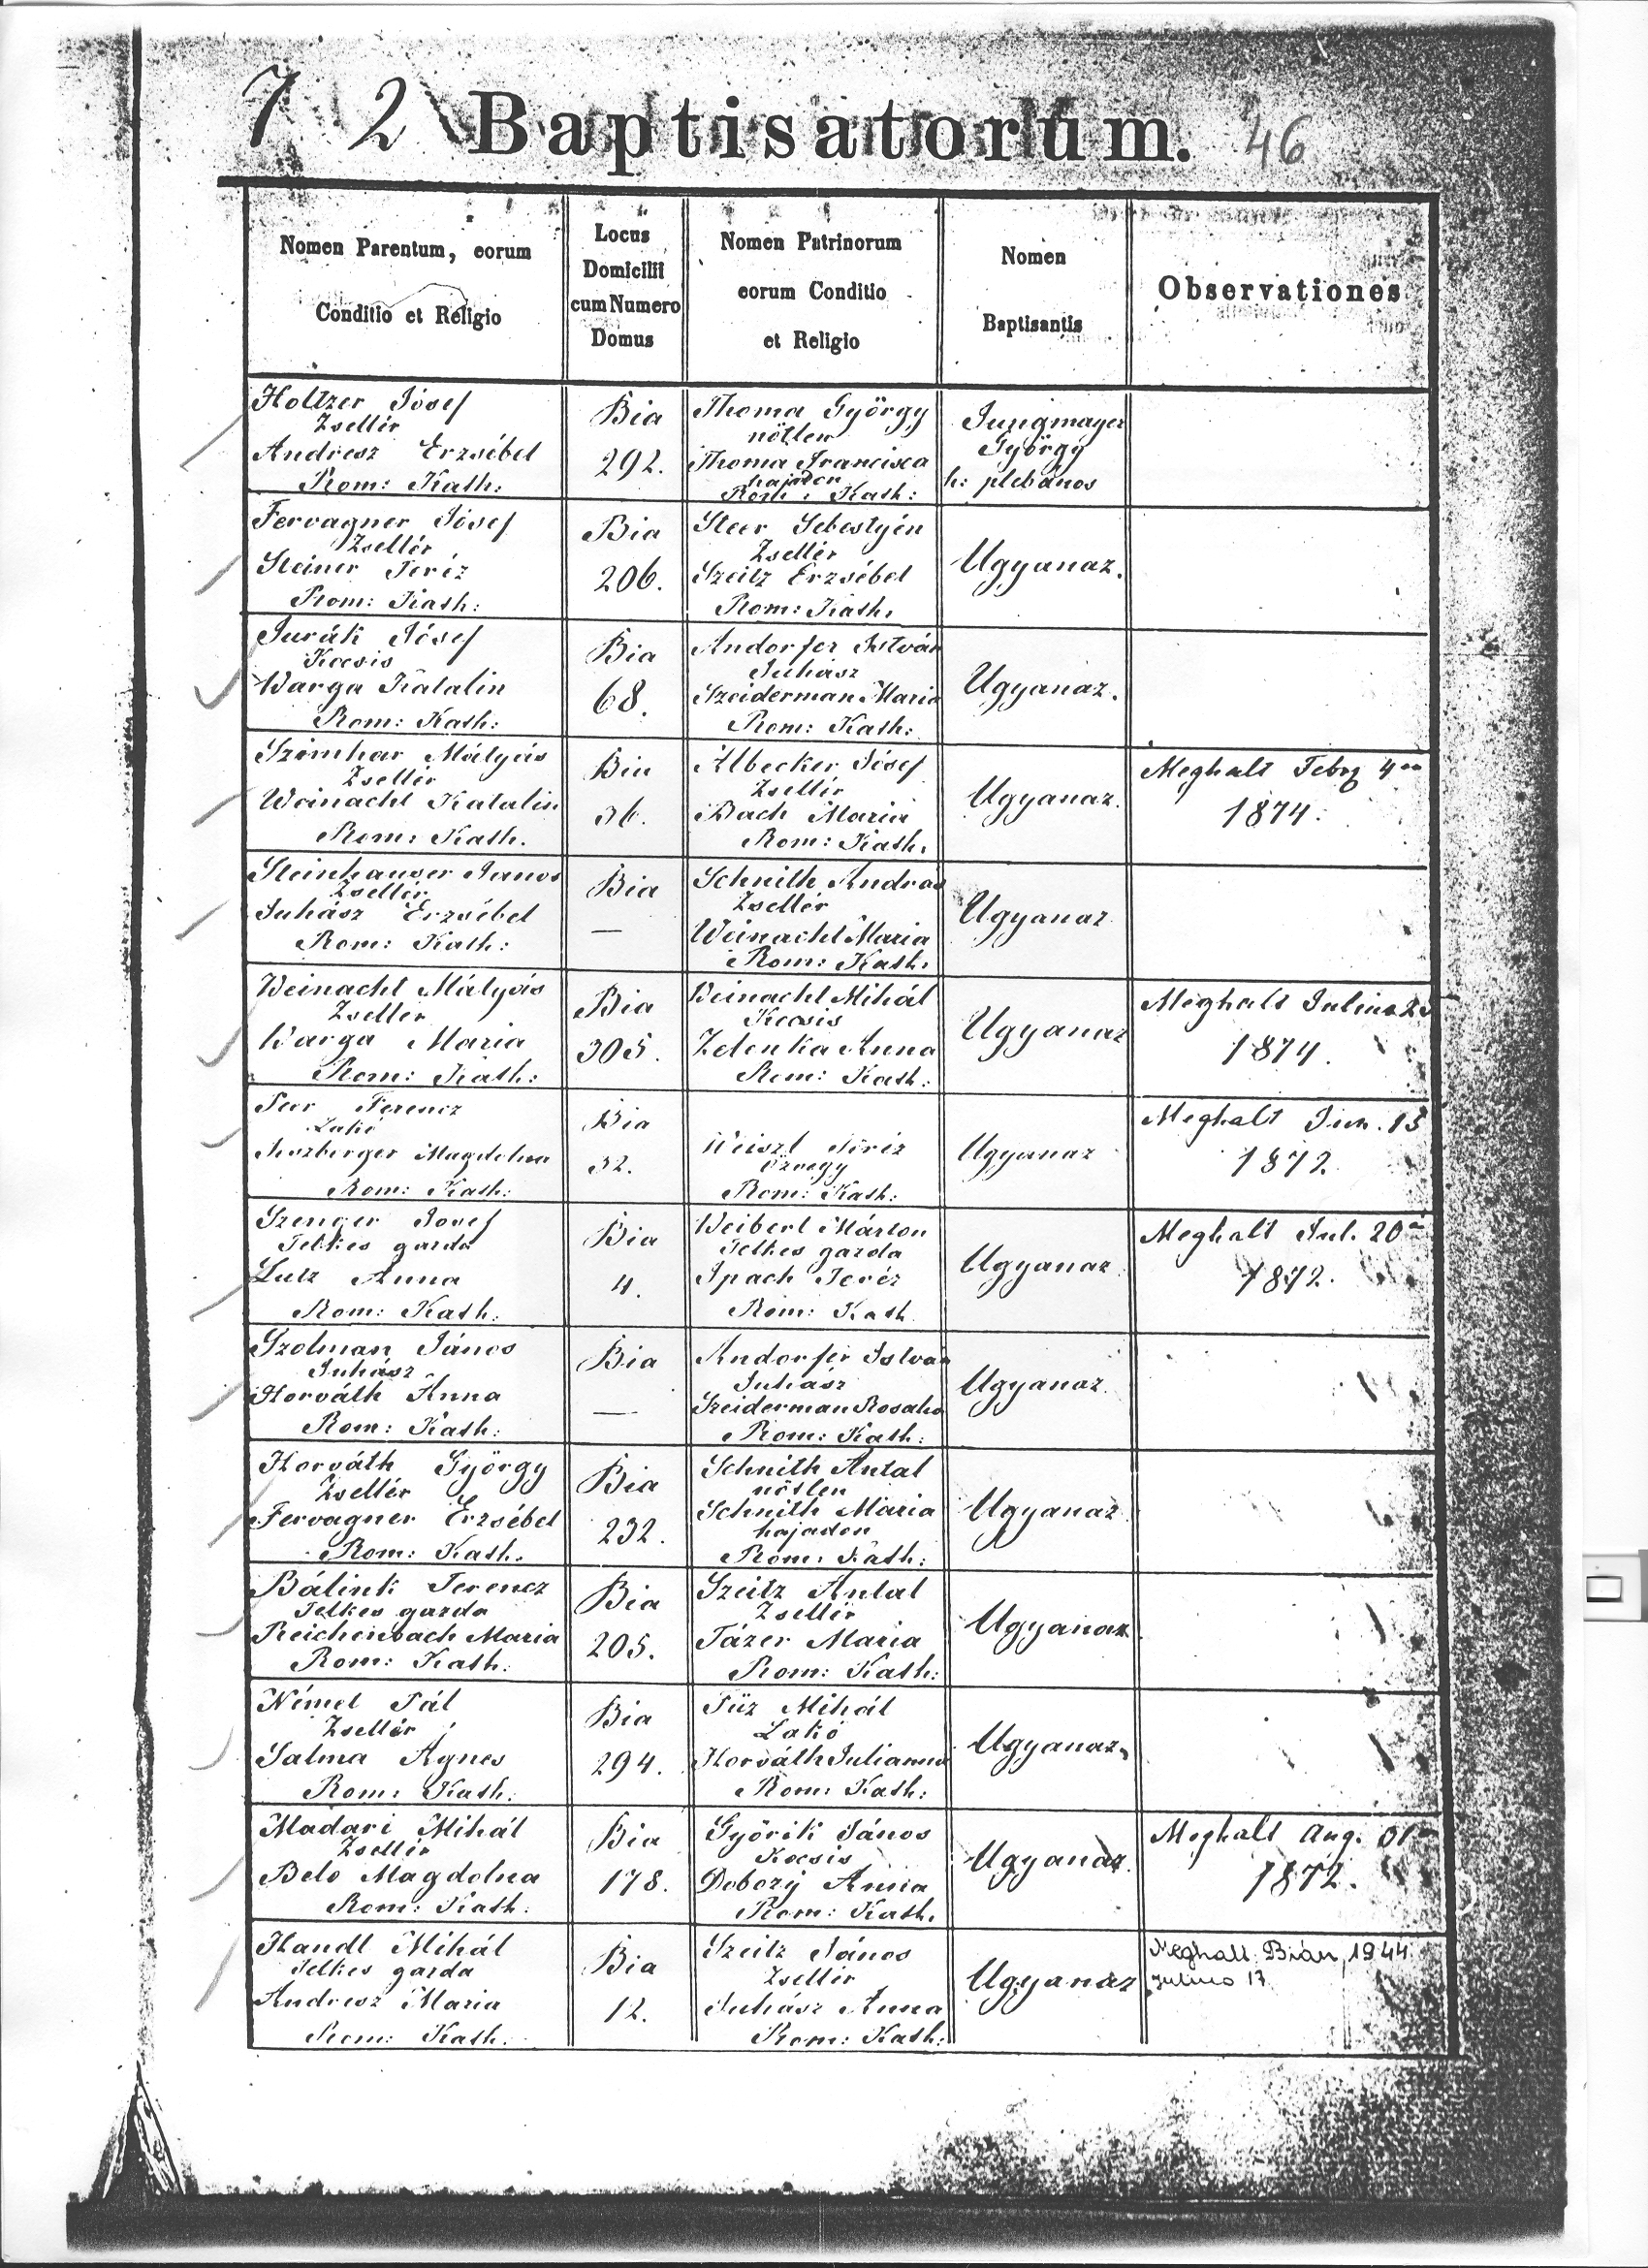 72 Baptisatorum. 46
Nomen Parentum, eorum
Conditio et Religio
Locus
Domicilii
cum Numero
Domus
Nomen Patrinorum
eorum Conditio
et Religio
Nomen
Baptisantis
Observationes
Holtzer Jósef
Zsellér
Andresz Erzsébet
Rom: Kath:
Bia
292.
Thoma György
nőtlen
Thoma Francisca
hajadon
Rom: Kath:
Jungmayer
György
h: plebános
Fervagner Jósef
Zsellér
Steiner Teréz
Rom: Kath:
Bia
206.
Steer Sebestyén
Zsellér
Szeitz Erzsébet
Rom: Kath:
Ugyanaz.
Jurák Jósef
Kocsis
Warga Katalin
Rom: Kath:
Bia
68.
Andorfer István
Juhász
Szeiderman Maria
Rom: Kath:
Ugyanaz.
Mátyás
Zsellér
Weinacht Katalin
Rom: Kath.
Bia
36.
Albecker Jósef
Zsellér
Bach Maria
Rom: Kath:
Ugyanaz.
Meghalt Febr 4
1874.
Steinhauser Janos
Zsellér
Juhász Erzsébet
Rom: Kath:
Bia
—
Schnith Andras
Zsellér
Weinacht Maria
Rom: Kath:
Ugyanaz
Weinacht Mátyás
Zseller
Warga Maria
Rom: Kath:
Bia
305.
Weinacht Mihál
Kocsis
Zelenka Anna
Rom: Kath:
Ugyanaz
Meghalt Julius
1874.
Ferencz
Lakó
Magdolna
Rom: Kath:
Bia
32.
Teréz
Özvegy
Rom: Kath:
Ugyanaz
Meghalt Jun. 13
1872.
Szenger Josef
Telkes gazda
Lutz Anna
Rom: Kath:
Bia
4.
Weibert Márton
Telkes gazda
Spach Teréz
Rom: Kath
Ugyanaz
Meghalt Jul. 20
1872.
János
Juhász
Horváth Anna
Rom: Kath:
Bia
—
Andorfer Istvan
Juhász
Szeiderman
Rom: Kath:
Ugyanaz.
Horváth György
Zsellér
Fervagner Erzsébet
Rom: Kath.
Bia
232.
Schnith Antal
nőtlen
Schnith Maria
hajadon
Rom: Kath:
Ugyanaz
Bálink Ferencz
Telkes gazda
Reichenbach Maria
Rom: Kath:
Bia
205.
Szeitz Antal
Zsellér
Tázer Maria
Rom: Kath:
Ugyanaz
Német Pál
Zsellér
Salma Agnes
Rom: Kath:
Bia
294.
Füz Mihál
Lakó
Horváth Julianna
Rom: Kath:
Ugyanaz.
Madari Mihál
Zsellér
Belo Magdolna
Rom: Kath:
Bia
178.
Györik János
Kocsis
Dobozy Anna
Rom: Kath.
Ugyanaz.
Meghalt Aug. 31
1872.
Handl Mihál
Telkes gazda
Andresz Maria
Rom: Kath:
Bia
12.
Szeitz János
Zsellér
Juhász Anna
Rom: Kath:
Ugyanaz
Meghalt Bián, 1944.
julius 17.